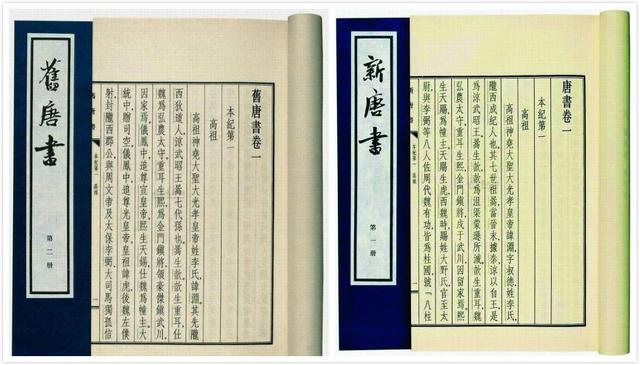 舊唐書
第二冊
舊唐書卷一
本紀第一
高祖
高祖神堯大聖大光孝皇帝姓李氏,諱淵。其先隴
西狄道人,涼武昭王暠七代孫也。暠生歆。歆生重耳,仕
魏爲弘農太守。重耳生熙,爲金門鎮將,領豪傑鎮武川,
因家焉。儀鳳中,追尊宣皇帝。熙生天錫,仕魏爲幢主。大
統中,贈司空。儀鳳中,追尊光皇帝。皇祖諱虎,後魏左僕
射,封隴西郡公,與周文帝及太保李弼、大司馬獨孤信
本紀第一 高祖
新唐書
第一冊
唐書卷一
本紀第一
高祖
高祖神堯大聖大光孝皇帝諱淵,字叔德,姓李氏,
隴西成紀人也。其七世祖暠,當晉末,據秦、涼以自王,是
爲涼武昭王。暠生歆,歆爲沮渠蒙遜所滅。歆生重耳,魏
弘農太守。重耳生熙,金門鎮將,戍于武川,因留家焉。熙
生天賜,爲幢主。天賜生虎,西魏時,賜姓大野氏,官至太
尉,與李弼等八人佐周代魏有功,皆爲柱國,號「八柱
本紀第一 高祖